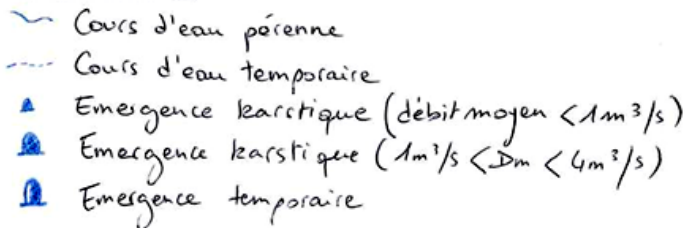 Cours d'eau pérenne
Cours d'eau temporaire
Emergence karstique (débit moyen < 1m³/s)
Emergence karstique (1m³/s < Dm < 4m³/s)
Emergence temporaire